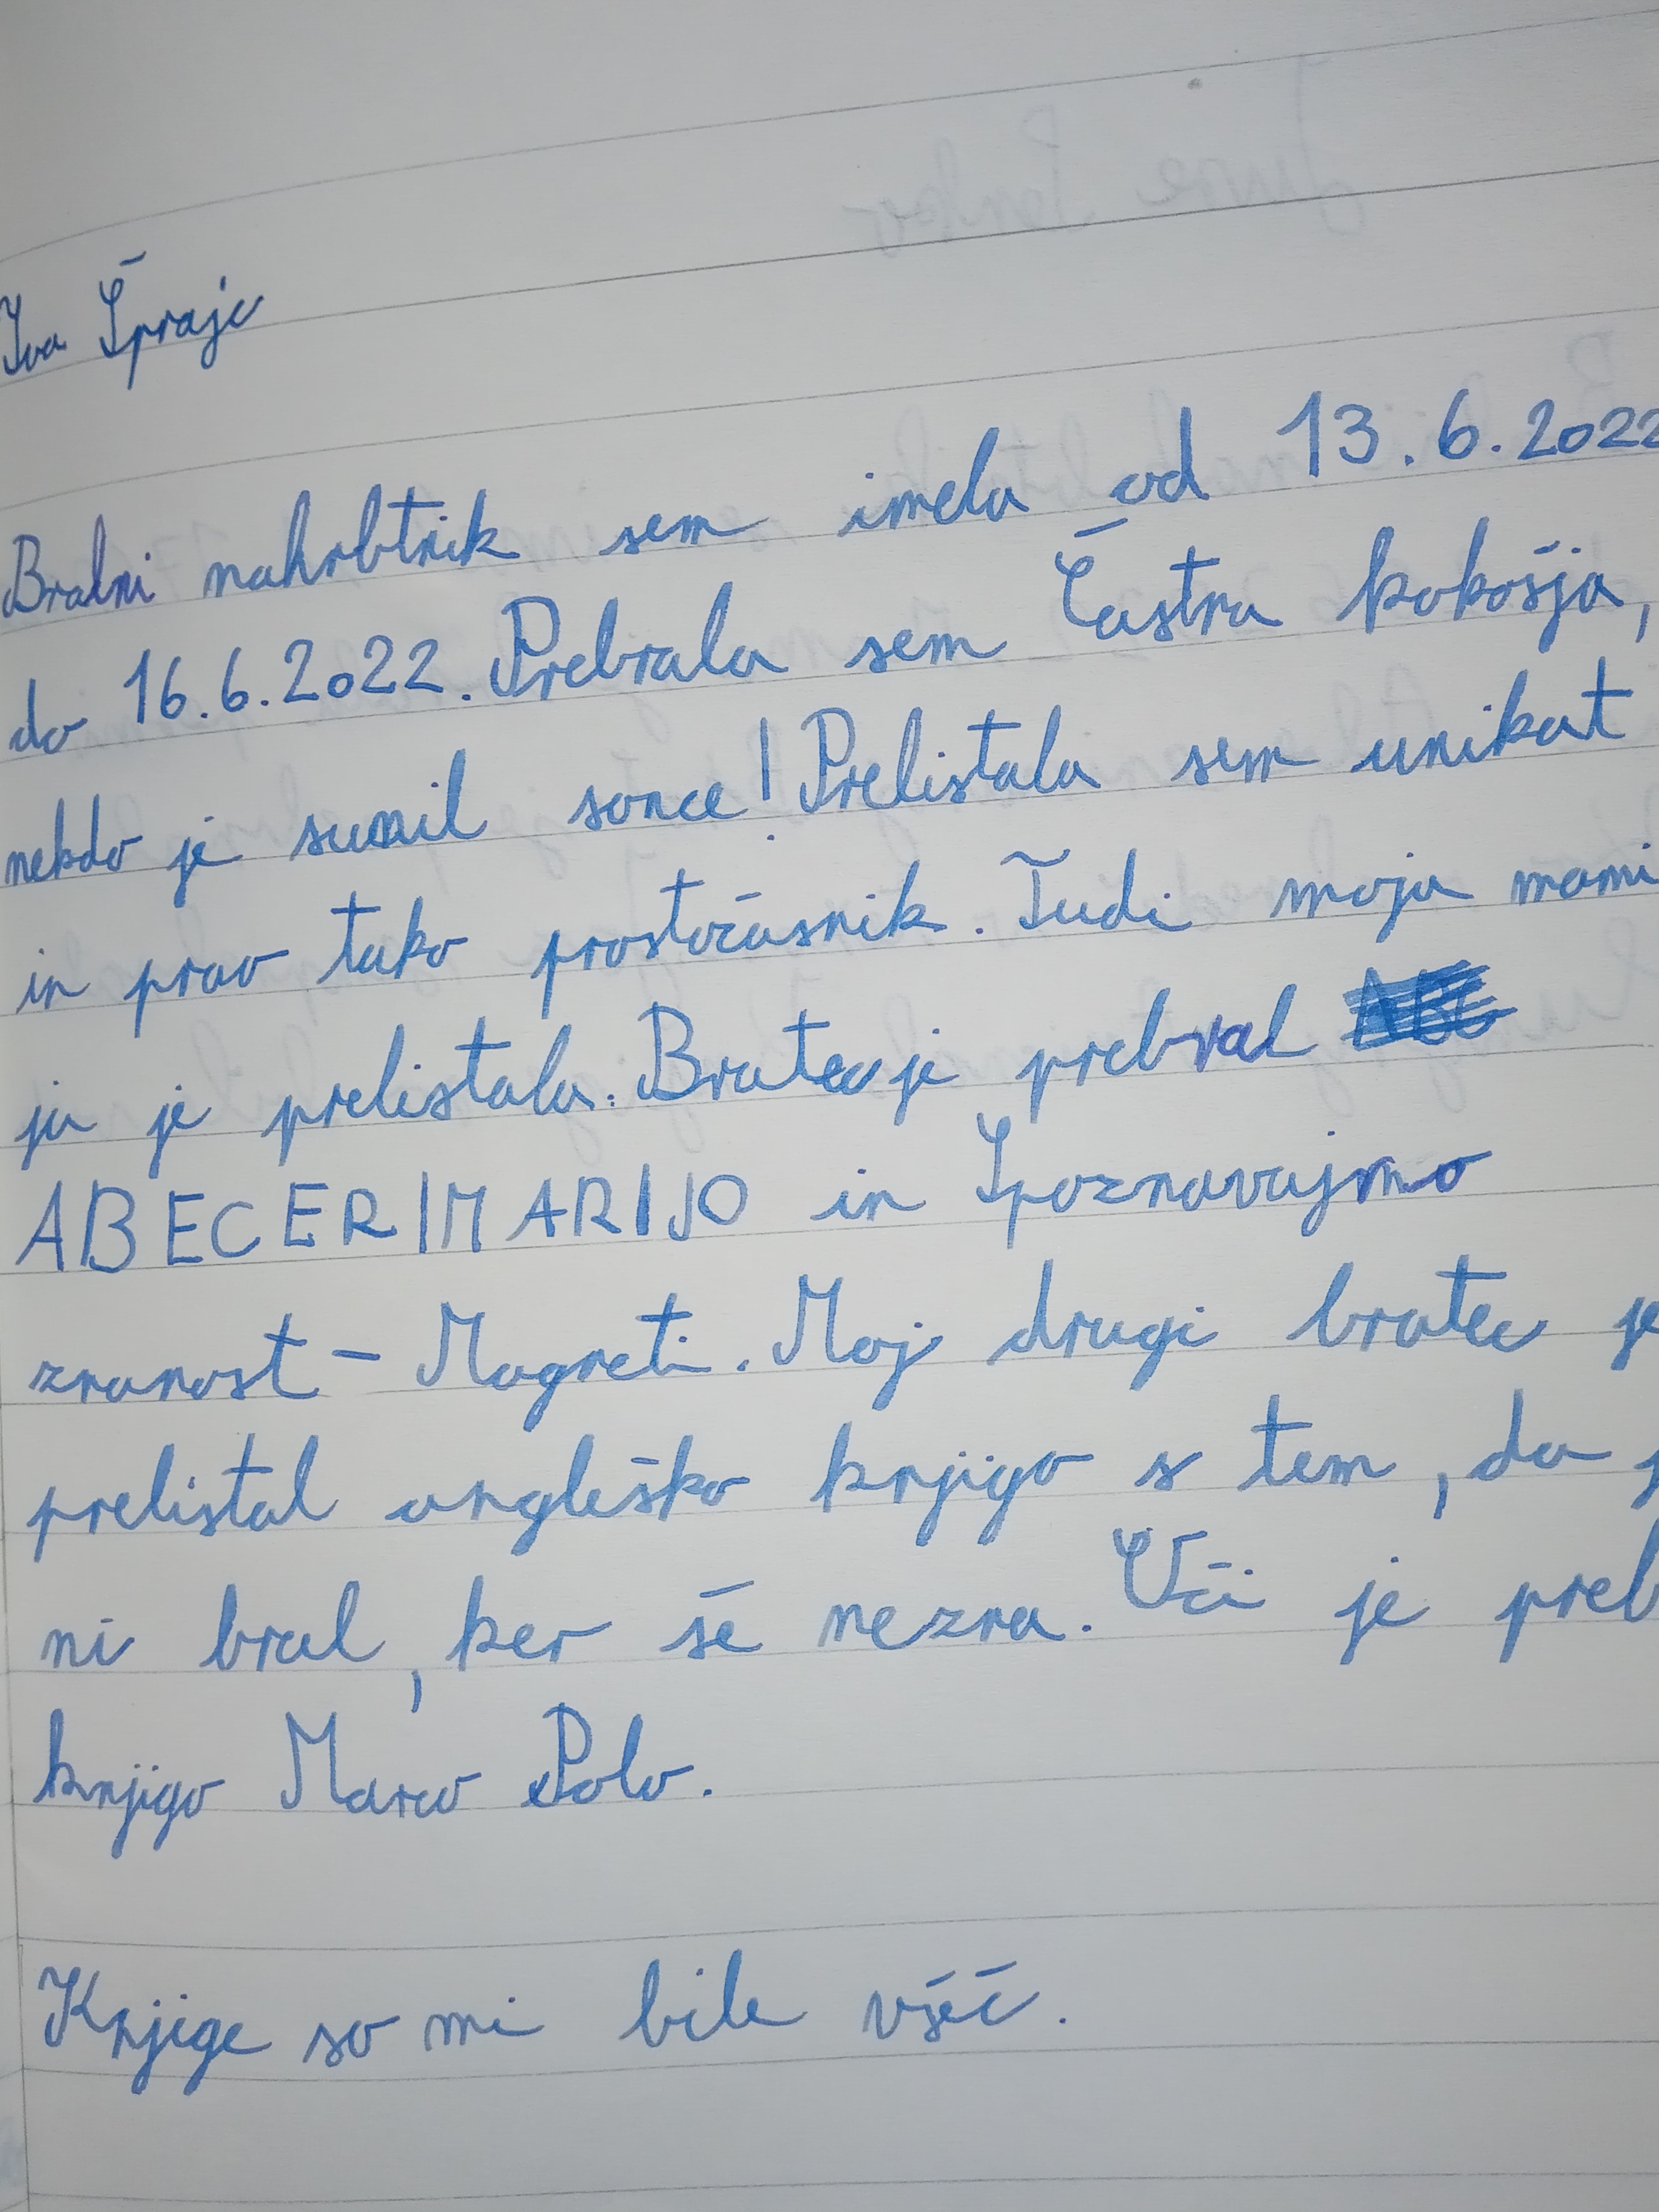 Iva Šprajc
Bralni nahrbtnik sem imela od 13.6.2022
do 16.6.2022. Prebrala sem Častna kokošja,
nekdo je sunil sonce! Prelistala sem unikat
in prav tako prostočasnik. Tudi moja mami
ju je prelistala. Bratec je prebral
ABECERIMARIJO in Spoznavajmo
znanost - Magneti. Moj drugi bratec je
prelistal angleško knjigo s tem, da
ni bral, ker še ne zna. Oči je preb
knjigo Marco Polo.
Knjige so mi bile všeč.